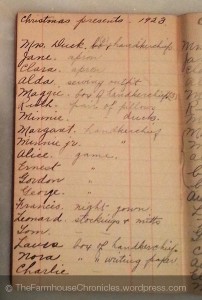 Christmas presents 1923
Mrs. Duck. box handkerchiefs
Jane. apron
Clara. apron
Alda. sewing outfit
Maggie. box of handkerchiefs
Ruth. pair of pillows
Minnie. ducks.
Margaret. handkerchief
Minnie Jr. "
Alice. game.
Ernest "
Gordon "
George. "
Francis. night gown.
Leonard. stockings & mitts
Tom. "
Laura box of handkerchiefs
Nora. " " writing paper
Charlie
©TheFarmhouseChronicles.wordpress.com